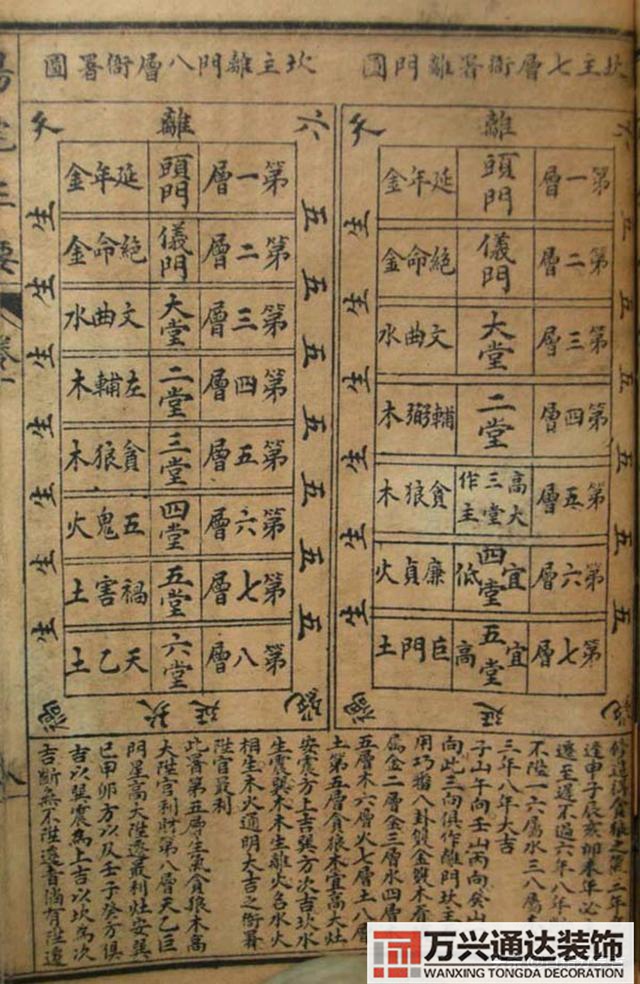 坎主七層衙署離門圖
六 離 天
第一層 頭門 延年金
第二層 儀門 絕命金
第三層 大堂 文曲水
第四層 二堂 輔弼木
第五層 高大三堂作主 貪狼木
第六層 宜四堂低 廉貞火
第七層 宜五堂高 巨門土
五 五 五 五 五 五
生 生 生 生 生 生
延
坎主離門八層衙署圖
六 離 天
第一層 頭門 延年金
第二層 儀門 絕命金
第三層 大堂 文曲水
第四層 二堂 左輔木
第五層 三堂 貪狼木
第六層 四堂 五鬼火
第七層 五堂 禍害土
第八層 六堂 天乙土
五 五 五 五 五 五 五
生 生 生 生 生 生 生
延
修造得貪狼之氣二年
逢申子辰亥卯未年必
遷至遲不過六年八年
不陞一六屬水三八屬
三年八年大吉
子山午向壬山丙向癸山
向此三向俱作離門坎主
用巧番八卦變金爻木看
屬金二層金三層水四層
五層木六層火七層土八層
土第五層貪狼木宜高大灶
安震方上吉巽方次吉坎水
生震巽木木生離火名水火
相生木火通明大吉之衙署
陞官最利
此署第五層生氣貪狼木高
大陞官利財第八層天乙巨
門星高大陞遷最利灶安巽
巳甲卯方以及壬子癸方俱
吉以巽震為上吉以坎為次
吉斷無不陞遷者倘有陞遷
陽宅三要
卷一
万兴通达装饰
WANXING TONGDA DECORATION